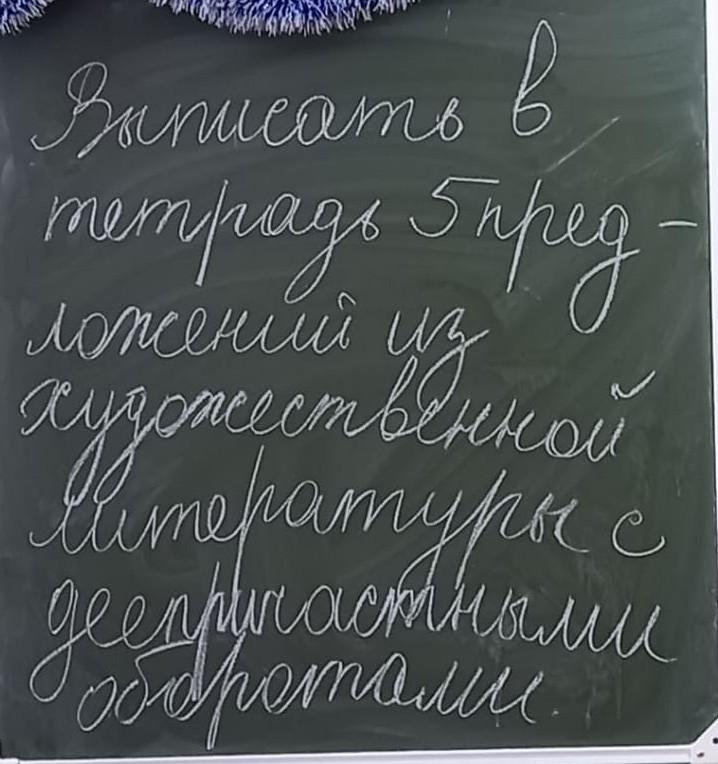 Выписать в
тетрадь 5 пред-
ложений из
художественной
литературы с
деепричастными
оборотами